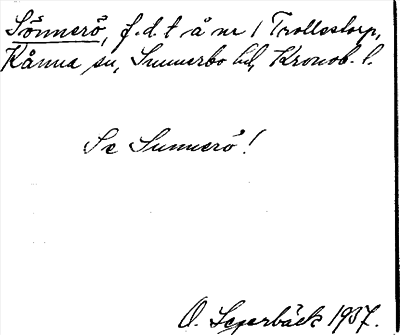 Sönnerö, f.d. t å nr 1 Trollestorp,
Kånna sn, Sunnerbo hd, Kronob. l.
Se Sunnerö!
O. Segerbäck 1937.